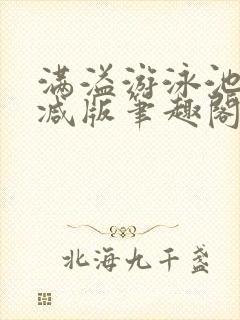 满溢游泳池
减版笔趣阁
北海九千盏